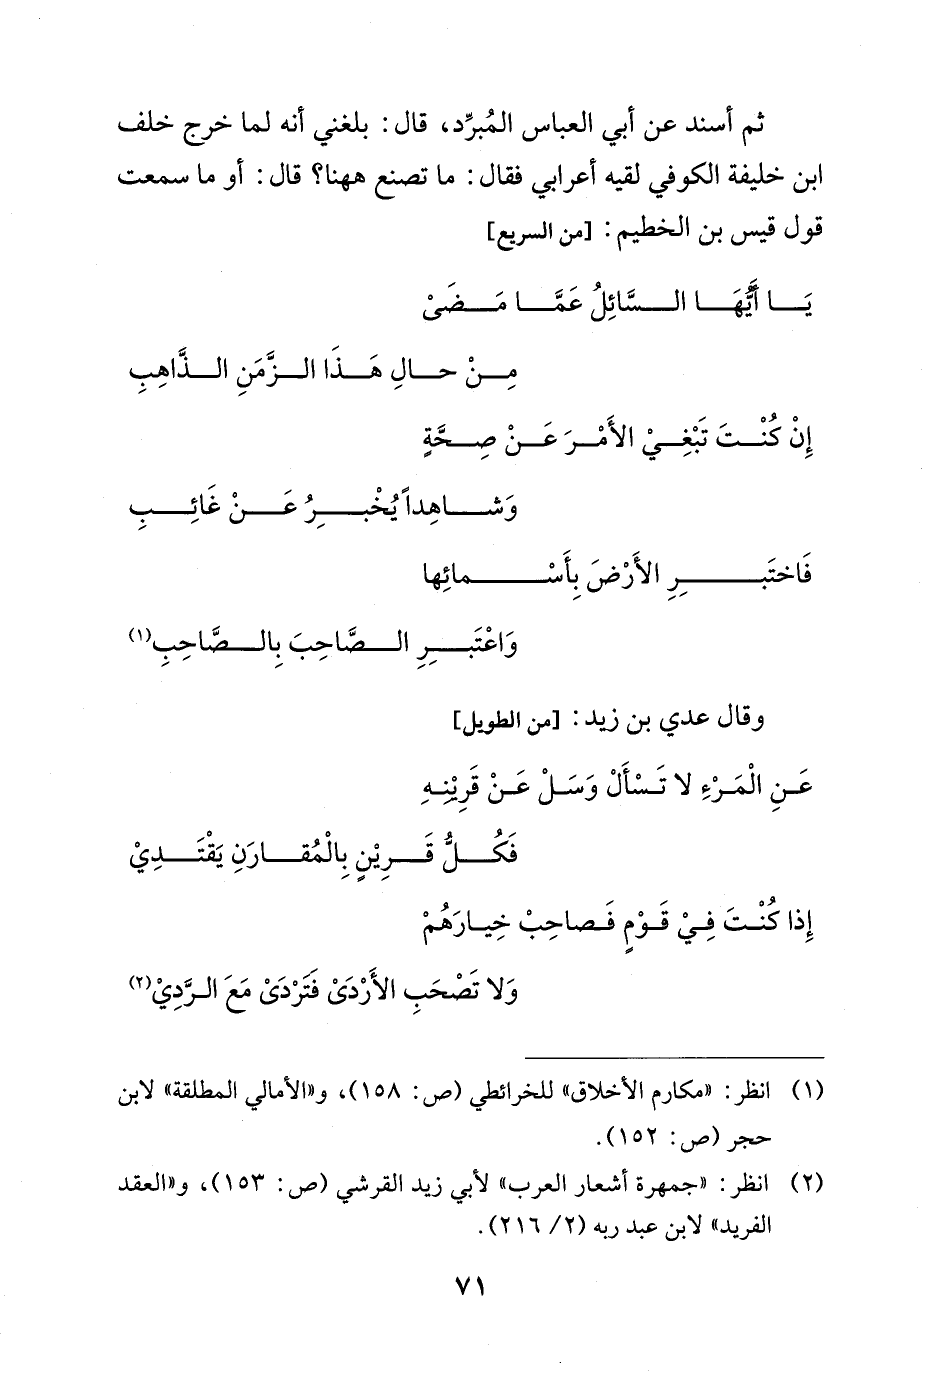 ثم أسند عن أبي العباس المُبرِّد، قال: بلغني أنه لما خرج خلف
ابن خليفة الكوفي لقيه أعرابي فقال: ما تصنع ههنا؟ قال: أو ما سمعت
قول قيس بن الخطيم: [من السريع]
يَا أَيُّهَا السَّائِلُ عَمَّا مَضَىْ
مِنْ حالِ هَذَا الزَّمَنِ الذَّاهِبِ
إِنْ كُنْتَ تَبْغِيْ الأَمْرَ عَنْ صِحَّةٍ
وَشاهِداً يُخْبِرُ عَنْ غَائِبِ
فَاختَبِرِ الأَرْضَ بِأَسْمائِها
وَاعْتَبِرِ الصَّاحِبَ بِالصَّاحِبِ(١)
وقال عدي بن زيد: [من الطويل]
عَنِ الْمَرْءِ لا تَسْأَلْ وَسَلْ عَنْ قَرِيْنِهِ
فَكُلُّ قَرِيْنٍ بِالْمُقارَنِ يَقْتَدِيْ
إِذا كُنْتَ فِيْ قَوْمٍ فَصاحِبْ خِيارَهُمْ
وَلا تَصْحَبِ الأَرْدَىْ فَتَرْدَىْ مَعَ الرَّدِيْ(٢)
(١) انظر: «مكارم الأخلاق» للخرائطي (ص: ١٥٨)، و«الأمالي المطلقة» لابن
حجر (ص: ١٥٢).
(٢) انظر: «جمهرة أشعار العرب» لأبي زيد القرشي (ص: ١٥٣)، و«العقد
الفريد» لابن عبد ربه (٢/ ٢١٦).
٧١